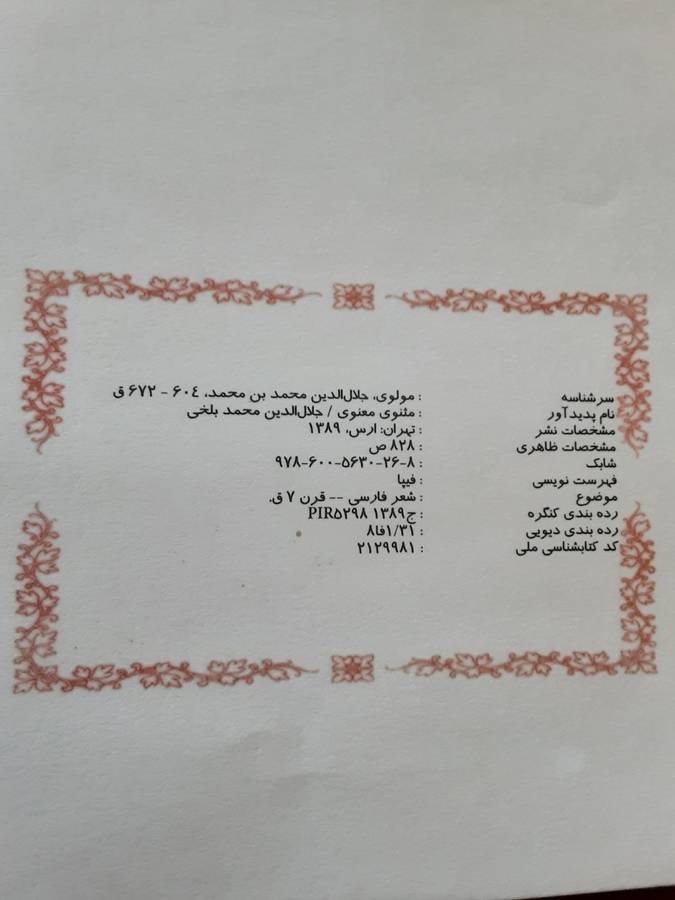 سرشناسه : مولوی، جلال‌الدین محمد بن محمد، ۶۰۴ - ۶۷۲ ق
نام پدیدآور : مثنوی معنوی / جلال‌الدین محمد بلخی
مشخصات نشر : تهران: ارس، ۱۳۸۹
مشخصات ظاهری : ۸۲۸ ص
شابک : ۹۷۸-۶۰۰-۵۶۳۰-۲۶-۸
فهرست نویسی : فیپا
موضوع : شعر فارسی -- قرن ۷ ق.
رده بندی کنگره : PIR۵۲۹۸ ۱۳۸۹ج
رده بندی دیویی : ۸فا۱/۳۱
کد کتابشناسی ملی : ۲۱۲۹۹۸۱